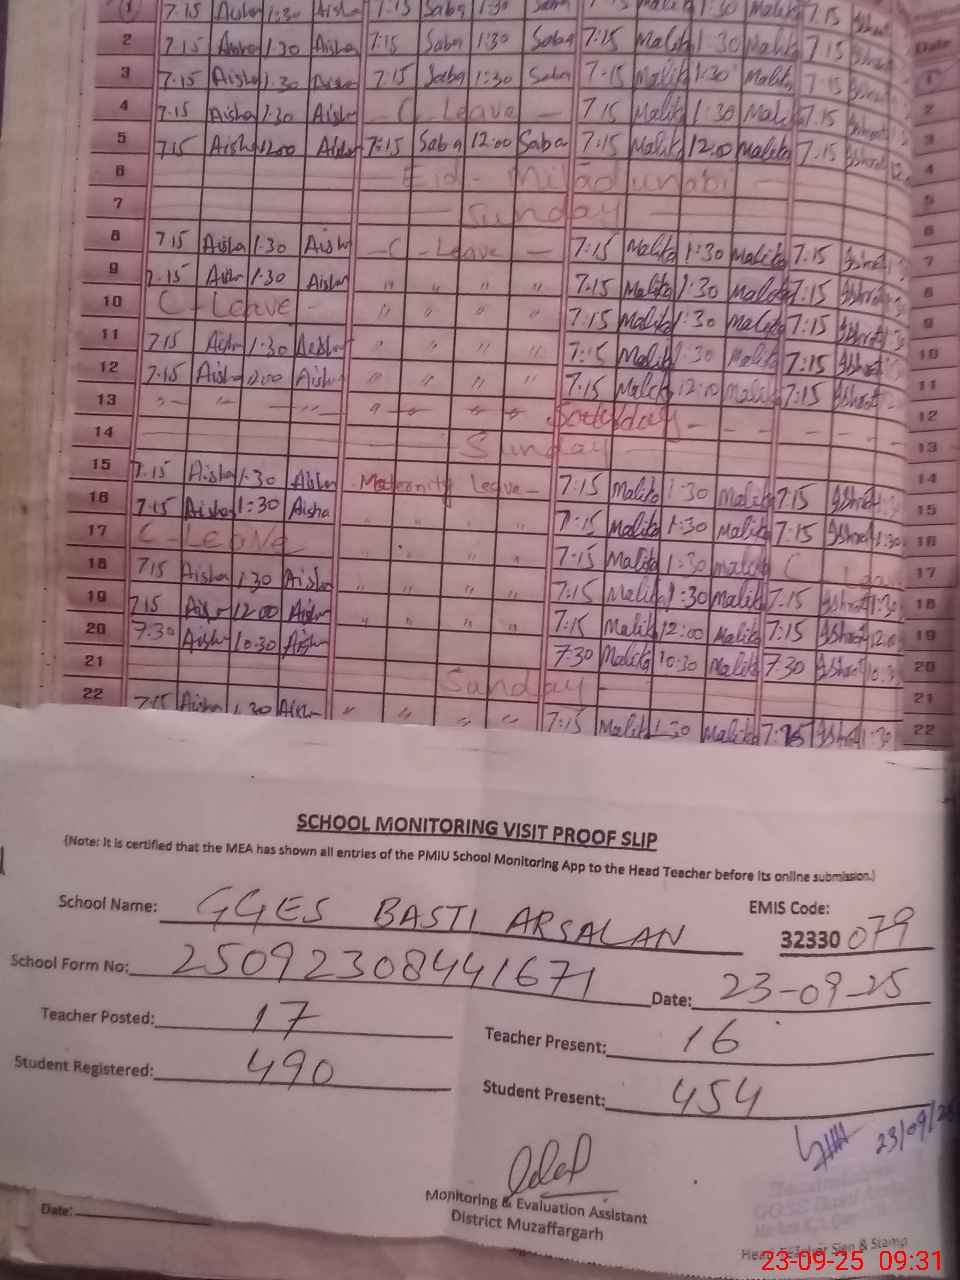 1 7.15 Aisha 1:30 Aisha 7:15 Saba 1:30 Saba 7:15 Malika 1:30 Malika 7.15
2 7.15 Aisha 1.30 Aisha 7:15 Saba 1:30 Saba 7:15 Malika 1:30 Malika 7.15
3 7.15 Aisha 1.30 Aisha 7.15 Saba 1:30 Saba 7:15 Malik 1:30 Malika 7.15
4 7.15 Aisha 1.30 Aisha - C - Leave - 7.15 Malik 1:30 Malik 7.15
5 7.15 Aisha 12.00 Aisha 7:15 Saba 12:00 Saba 7:15 Malika 12.00 Malika 7.15
6 - Eid - Milad unabi -
7 - Sunday -
8 7.15 Aisha 1.30 Aisha - C - Leave - 7:15 Malika 1:30 Malika 7:15
9 7.15 Aisha 1.30 Aisha " " " " 7:15 Malika 1:30 Malika 7:15
10 C - Leave - " " " " 7:15 Malika 1:30 Malika 7:15
11 7.15 Aisha 1.30 Aisha " " " " 7:15 Malik 1:30 Malika 7:15
12 7.15 Aisha 12.00 Aisha " " " " 7:15 Malika 12:00 Malika 7:15
13 " " " " " " " Saturday - - - - -
14 - Sunday -
15 7.15 Aisha 1.30 Aisha - Maternity leave - 7:15 Malika 1:30 Malika 7:15
16 7.15 Aisha 1:30 Aisha " " " " 7:15 Malika 1:30 Malika 7:15 1:30
17 C - LEAVE " " " " 7:15 Malika 1:30 Malika C Leav
18 7.15 Aisha 1.30 Aisha " " " " 7:15 Malik 1:30 Malik 7.15 1:30
19 7.15 Aisha 12.00 Aisha " " " " 7:15 Malik 12:00 Malika 7:15 12.0
20 7.30 Aisha 10.30 Aisha 7:30 Malika 10:30 Malika 7:30 10:3
21 Sunday -
22 7.15 Aisha 1.30 Aisha " " " " 7:15 Malik 1:30 Malika 7:15 1:30
Date
1
2
3
4
5
6
7
8
9
10
11
12
13
14
15
16
17
18
19
20
21
22
SCHOOL MONITORING VISIT PROOF SLIP
(Note: It is certified that the MEA has shown all entries of the PMIU School Monitoring App to the Head Teacher before its online submission.)
School Name: GGES BASTI ARSALAN EMIS Code:
32330 079
School Form No: 25092308441671 Date: 23-09-25
Teacher Posted: 17 Teacher Present: 16
Student Registered: 490 Student Present: 454
23/09/25
Monitoring & Evaluation Assistant
District Muzaffargarh
Date:
Head Teacher Sign & Stamp
23-09-25 09:31